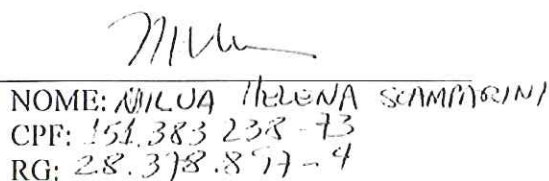 NOME: NILVA HELENA SCAMPARINI
CPF: 151.383 238-73
RG: 28.378.897-4